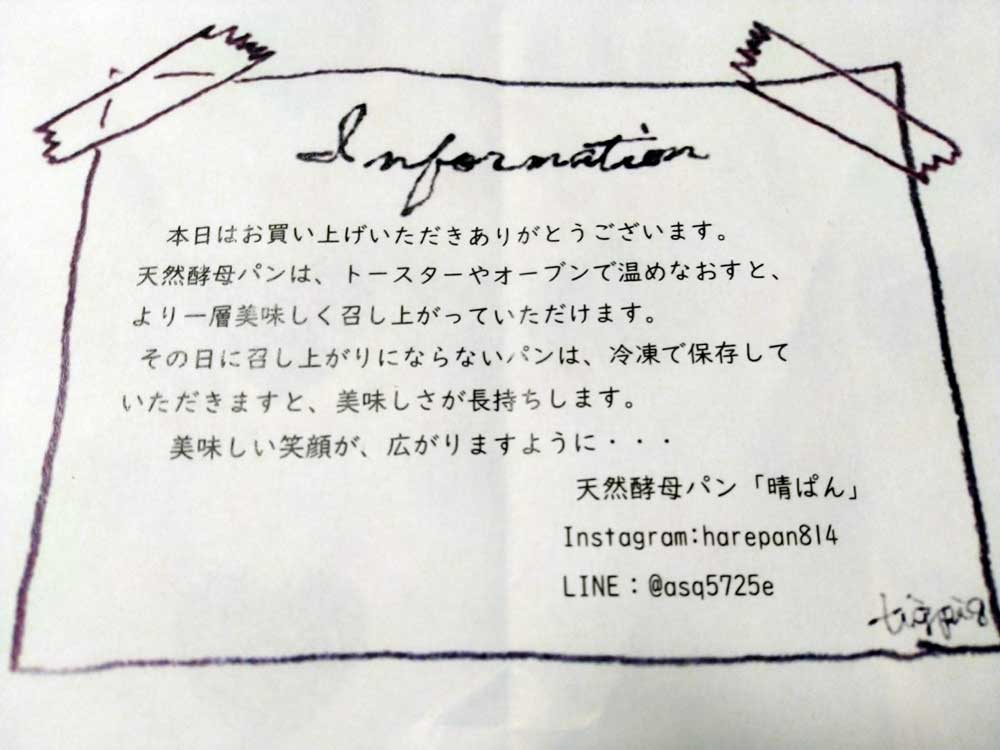 Information
本日はお買い上げいただきありがとうございます。
天然酵母パンは、トースターやオーブンで温めなおすと、
より一層美味しく召し上がっていただけます。
その日に召し上がりにならないパンは、冷凍で保存して
いただきますと、美味しさが長持ちします。
美味しい笑顔が、広がりますように・・・
天然酵母パン「晴ぱん」
Instagram:harepan814
LINE：@asq5725e